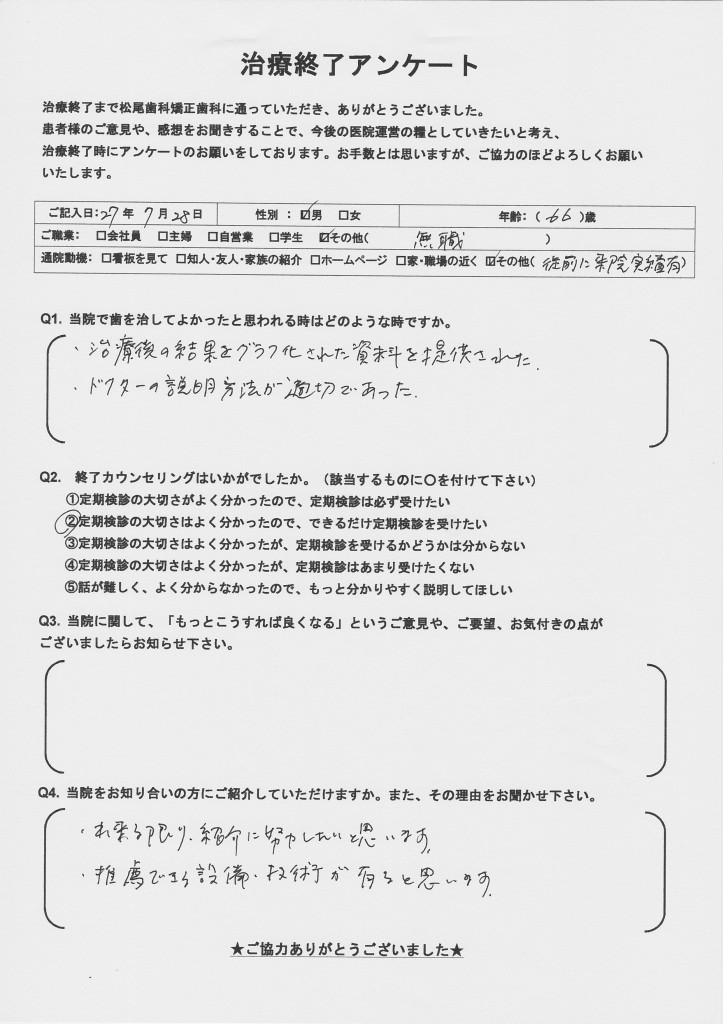 治療終了アンケート
治療終了まで松尾歯科矯正歯科に通っていただき、ありがとうございました。
患者様のご意見や、感想をお聞きすることで、今後の医院運営の糧としていきたいと考え、
治療終了時にアンケートのお願いをしております。お手数とは思いますが、ご協力のほどよろしくお願い
いたします。
ご記入日：27年 7月 28日 性別 ： ☑男 □女 年齢：（ 66 ）歳
ご職業： □会社員 □主婦 □自営業 □学生 ☑その他（ 無職 ）
通院動機：□看板を見て □知人・友人・家族の紹介 □ホームページ □家・職場の近く ☑その他（従前に来院実績有）
Q1. 当院で歯を治してよかったと思われる時はどのような時ですか。
・治療後の結果をグラフ化された資料を提供された.
・ドクターの説明方法が適切であった.
Q2. 終了カウンセリングはいかがでしたか。（該当するものに〇を付けて下さい）
①定期検診の大切さがよく分かったので、定期検診は必ず受けたい
②定期検診の大切さはよく分かったので、できるだけ定期検診を受けたい
③定期検診の大切さはよく分かったが、定期検診を受けるかどうかは分からない
④定期検診の大切さはよく分かったが、定期検診はあまり受けたくない
⑤話が難しく、よく分からなかったので、もっと分かりやすく説明してほしい
Q3. 当院に関して、「もっとこうすれば良くなる」というご意見や、ご要望、お気付きの点が
ございましたらお知らせ下さい。
Q4. 当院をお知り合いの方にご紹介していただけますか。また、その理由をお聞かせ下さい。
・出来る限り、紹介に努力したいと思います。
・推薦できる設備・技術が有ると思います。
★ご協力ありがとうございました★